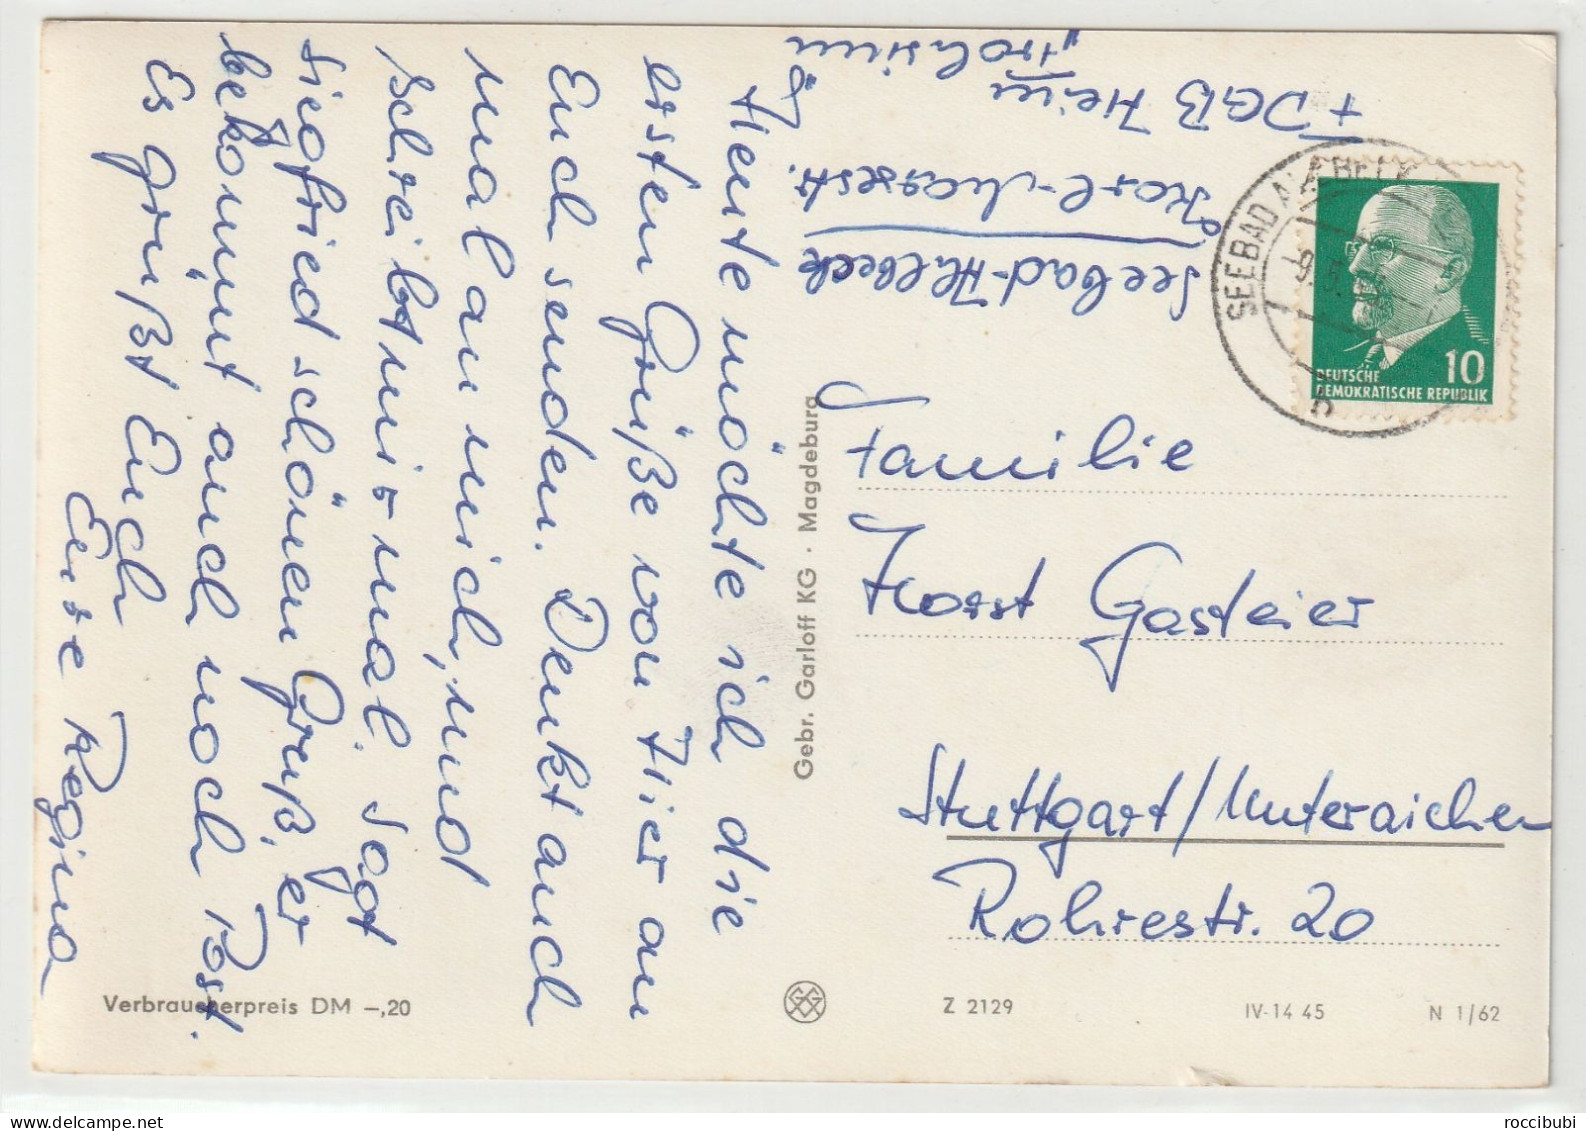 FDGB Heim
„Frohsinn“
Karl-Marxestr. 8
Seebad-Ahlbeck
Heute möchte ich die
ersten Grüße von Hier an
Euch senden. Denkt auch
mal an mich, und
schreibt mir mal. Sagt
Siegfried schönen Gruß, er
bekommt auch noch Post.
Es grüßt Euch
Eure Regina
Familie
Horst Gasteier
Stuttgart/Unteraichen
Rohrestr. 20
SEEBAD AHLBECK
b
10
DEUTSCHE
DEMOKRATISCHE REPUBLIK
Gebr. Garloff KG · Magdeburg
Verbraucherpreis DM –,20
Z 2129
IV-14 45
N 1/62
roccibubi